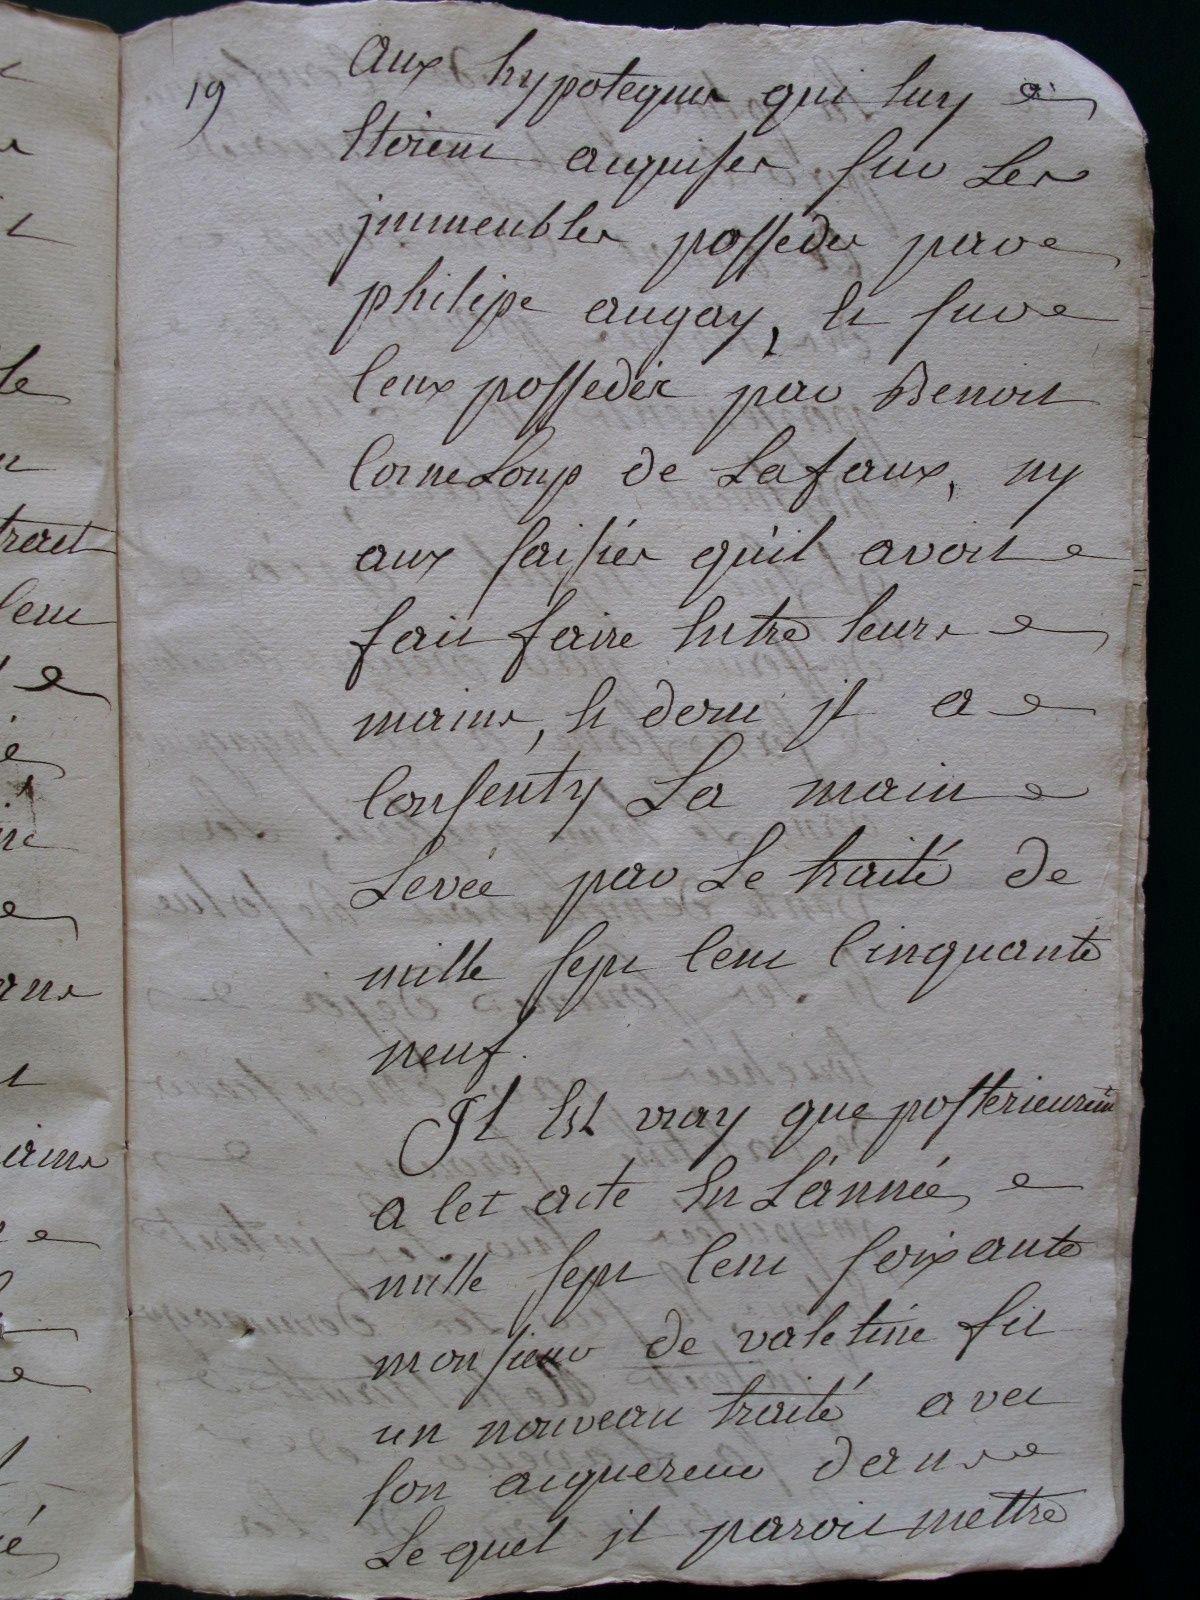 19
aux hypoteques qui luy
Etoient acquises sur Les
jmmeubles possedés par
philipe augay, Et sur
Ceux possedés par Benoit
CorneLoup de Lafaux, ny
aux saisies qu'il avoit
fait faire Entre leurs
mains, Et dont jl a
Consenty La main
Levée par Le traité de
mille sept Cent Cinquante
neuf.
Il Est vray que posterieuremt
a Cet acte En L'année
mille sept Cent soixante
monsieur de valetine fit
un nouveau traité avec
son acquereur dans
Lequel jl paroit mettre
tract